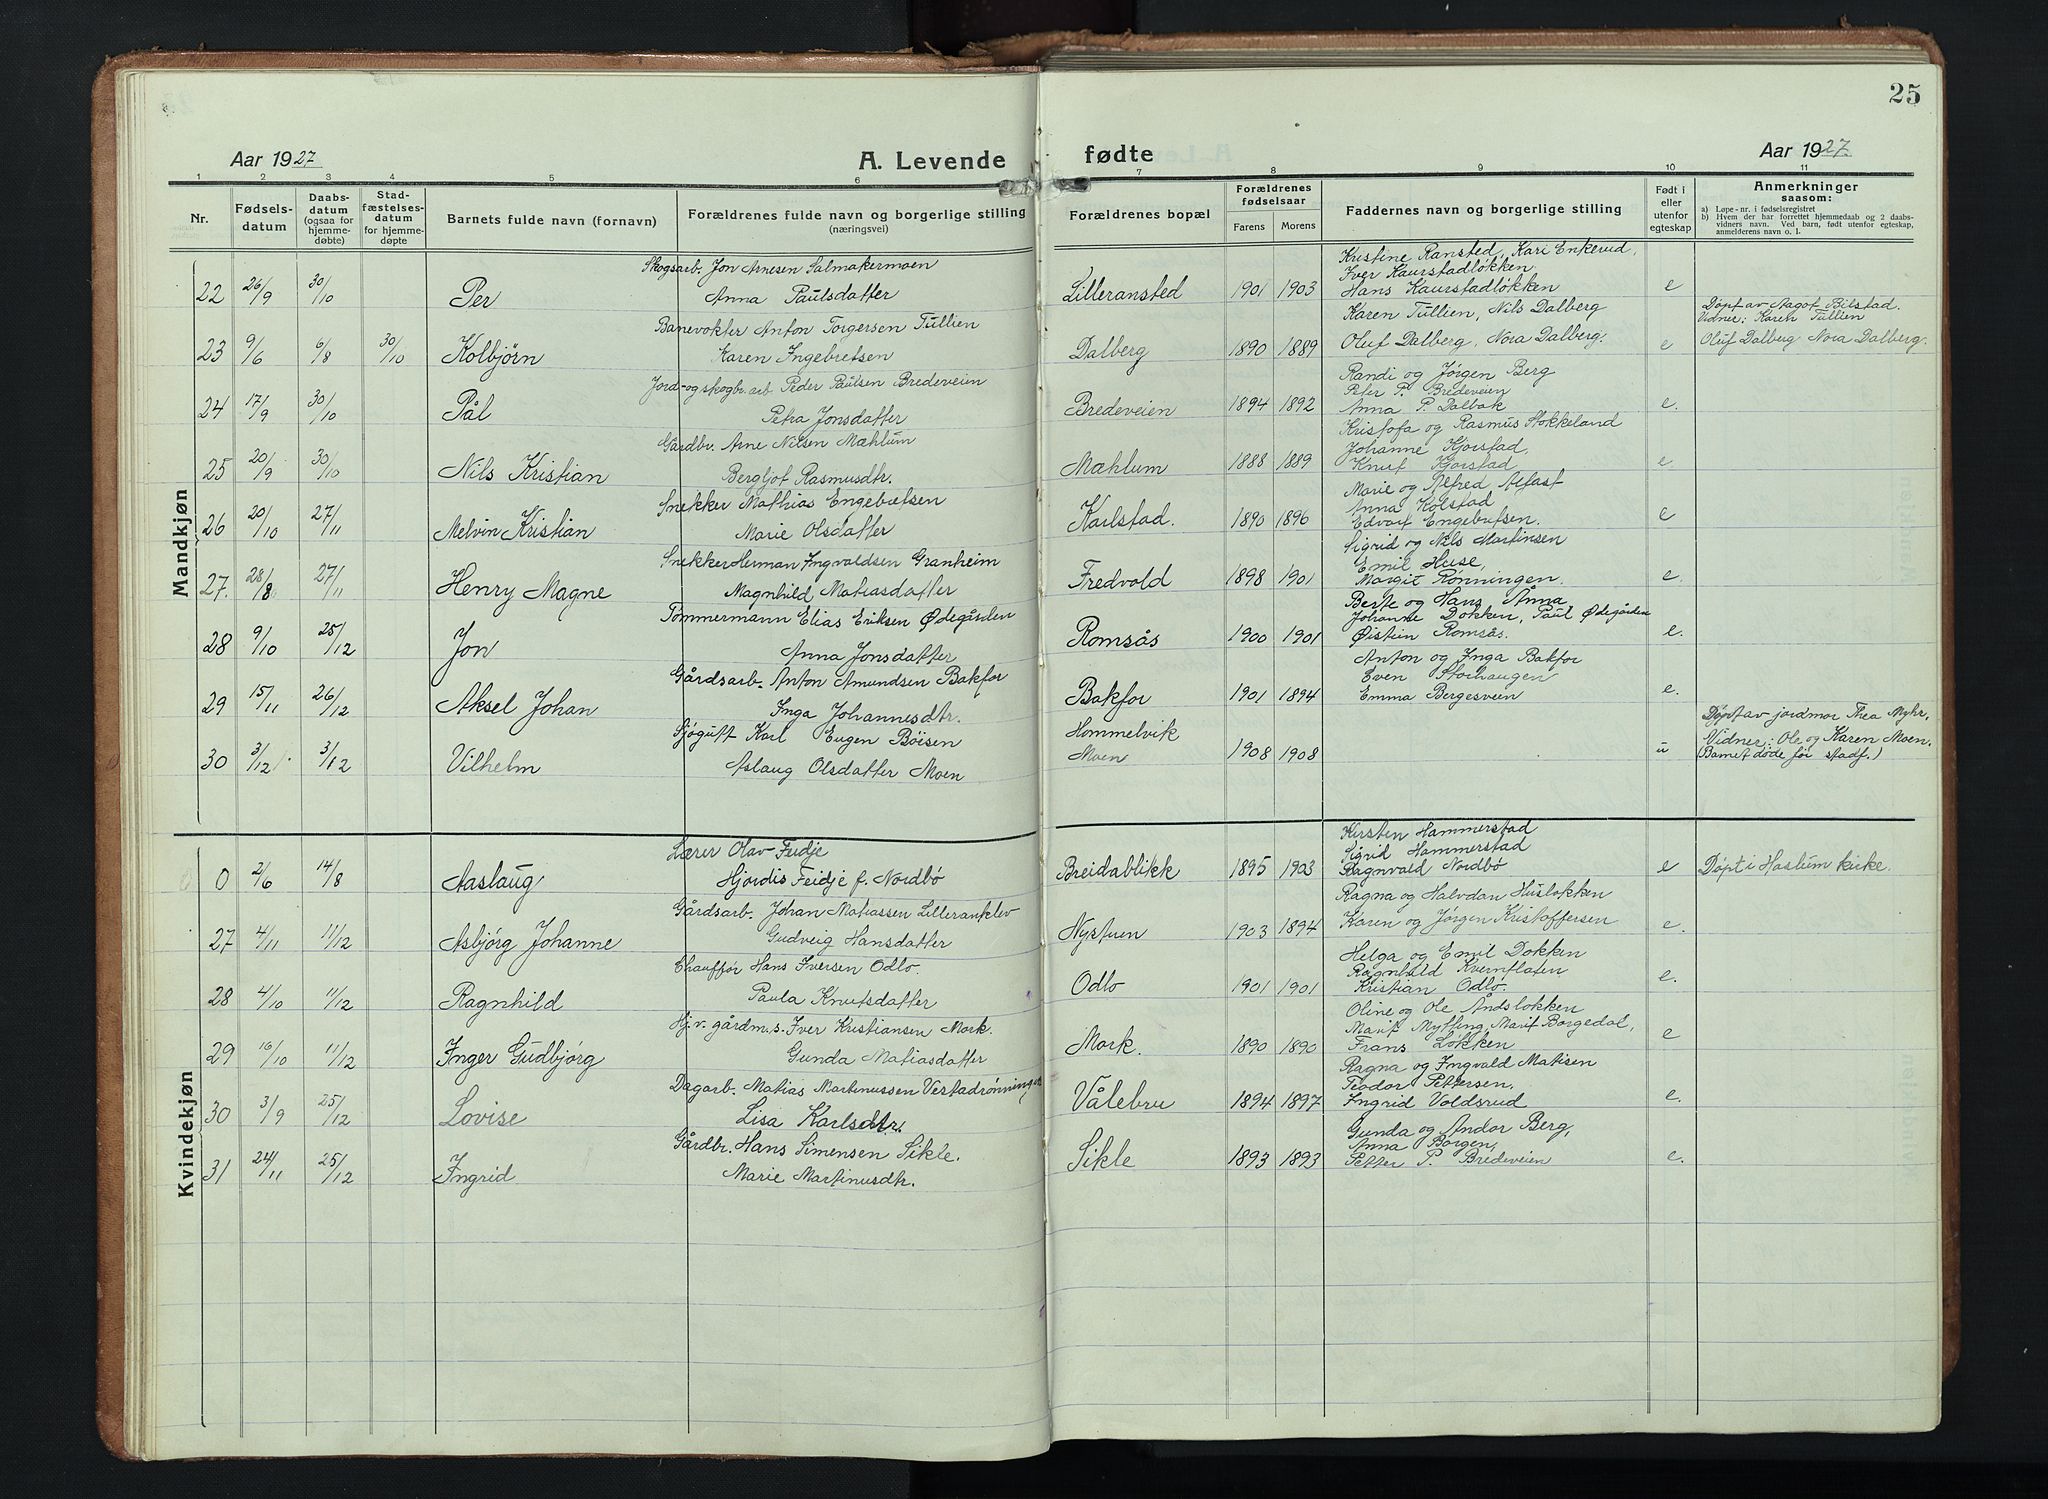 25
Aar 1927
A. Levende
fødte
Aar 1927.
1 2 3 4 5 6 7 8 9 10 11
Nr.
Fødsels-
datum
Daabs-
datum
(ogsaa for
hjemme-
døbte)
Stad-
fæstelses-
datum
for hjemme-
døpte
Barnets fulde navn (fornavn)
Forældrenes fulde navn og borgerlige stilling
(næringsvei)
Forældrenes bopæl
Forældrenes
fødselsaar
Farens Morens
Faddernes navn og borgerlige stilling
Født i
eller
utenfor
egteskap
Anmerkninger
saasom:
a) Løpe-nr. i fødselsregistret
b) Hvem der har forrettet hjemmedaab og 2 daabs-
vidners navn. Ved barn, født utenfor egteskap,
anmelderens navn o. l.
Mandkjøn
Skogsarb. Jon Arnesen Salmakermoen
22 26/9 30/10 Per Anna Paulsdatter Lilleransted 1901 1903 e
Kristine Ransted, Kari Enkerud,
Iver Kaurstadløkken
Hans Kaurstadløkken
Banevokter Anton Torgersen Tullien
23 9/6 6/8 30/10 Kolbjørn Karen Ingebretsen Dalberg 1890 1889 e
Karen Tullien, Nils Dalberg
Oluf Dalberg, Nora Dalberg.
Døpt av Aagot Bilstad.
Vidner: Karen Tullien
Oluf Dalberg Nora Dalberg.
Jord- og skogbr. arb. Peder Paulsen Bredeveien
24 17/9 30/10 Pål Petra Jonsdatter Bredeveien 1894 1892 e.
Randi og Jørgen Berg
Peter P. Bredeveien
Anna P. Dalbak
Gårdbr. Arne Nilsen Mæhlum
25 20/9 30/10 Nils Kristian Bergljot Rasmusdtr. Mæhlum 1888 1889 e.
Kristofa og Rasmus Stokkeland
Johanne Kjorstad,
Knut Kjorstad
Snekker Mathias Engebretsen
26 20/10 27/11 Melvin Kristian Marie Olsdatter Karlstad. 1890 1896 e
Marie og Alfred Alfast
Anna Kolstad
Edvart Engebretsen.
Snekker Herman Ingvaldsen Granheim
27. 28/8 27/11 Henry Magne Magnhild Matiasdatter Fredvold 1898 1901 e.
Sigrid og Nils Martinsen
Emil Huse,
Margit Rønningen.
Tømmermann Elias Eriksen Ødegården
28 9/10 25/12 Jon Anna Jonsdatter Romsås 1900 1901 e.
Berte og Hans Ånna
Johanne Dokken, Paul Ødegården
Øistein Romsås.
Gårdsarb. Anton Amundsen Bakfor
29 15/11 26/12 Aksel Johan Inga Johannesdtr. Bakfor 1901 1894 e.
Anton og Inga Bakfor
Even Storhaugen
Emma Bergesveen
Sjøgutt Karl Eugen Bøisen
30 3/12 3/12 Vilhelm Aslaug Olsdatter Moen
Hommelvik
Moen 1908 1908 u
Døpt av jordmor Thea Myhr.
Vidner: Ole og Karen Moen.
(Barnet døde før stadf.)
Kvindekjøn
Lærer Olav Feidje
0 2/6 14/8 Aaslaug Hjordis Feidje f. Nordbø Breidablikk 1895 1903 e Døpt i Haslum kirke.
Kirsten Hammerstad
Sigrid Hammerstad
Ragnvald Nordbø
Gårdsarb. Johan Matiassen Lilleranklev
27 4/11 11/12 Asbjørg Johanne Gudveig Hansdatter Nystuen 1903 1894 e.
Ragna og Halvdan Husløkken
Karen og Jørgen Kristoffersen
Chauffør Hans Iversen Odlo.
28 4/10 11/12 Ragnhild Paula Knutsdatter Odlo 1901 1901 e.
Helga og Emil Dokken
Ragnhild Kvernflaten
Kristian Odlo.
Hj. v. gårdm. s. Iver Kristiansen Mork.
29 16/10 11/12 Inger Gudbjørg Gunda Matiasdatter Mork. 1890 1890 e
Oline og Ole Åndsløkken
Marit Mytting, Marit Borgedal,
Frans Løkken
Dagarb. Matias Martinussen Vestadrønningen
30 3/9 25/12 Lovise Lisa Karlsdtr. Vålebru 1894 1897 e.
Ragna og Ingvald Matisen
Teodor Pettersen.
Ingrid Voldsrud
Gårdbr. Hans Simensen Sikle.
31 24/11 25/12 Ingrid Marie Martinusdtr. Sikle 1893 1893 e.
Gunda og Andor Berg,
Anna Borgen,
Petter P. Bredeveien